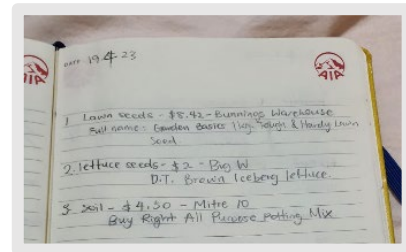 AIA
DATE 19.4.23
AIA
1 Lawn seeds - $8.42 - Bunnings Warehouse
Full name: Garden Basics 1kg Tough & Hardy Lawn
Seed
2. lettuce seeds - $2 - Big W
D.T. Brown Iceberg lettuce.
3. Soil - $4.50 - Mitre 10
Buy Right All Purpose Potting Mix